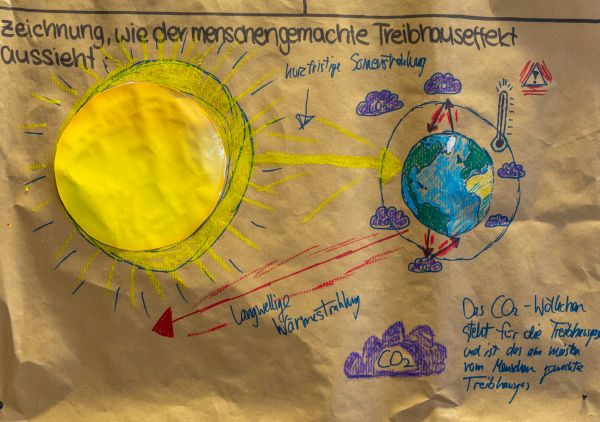 zeichnung, wie der menschengemachte Treibhauseffekt
aussieht:
kurzfristige Sonnenstrahlung
CO₂
CO₂
CO₂
CO₂
CO₂
Langwellige
Wärmestrahlung
CO₂
Das CO₂-Wölkchen
steht für die Treibhausgase
und ist das am meisten
vom Menschen gemachte
Treibhausgas